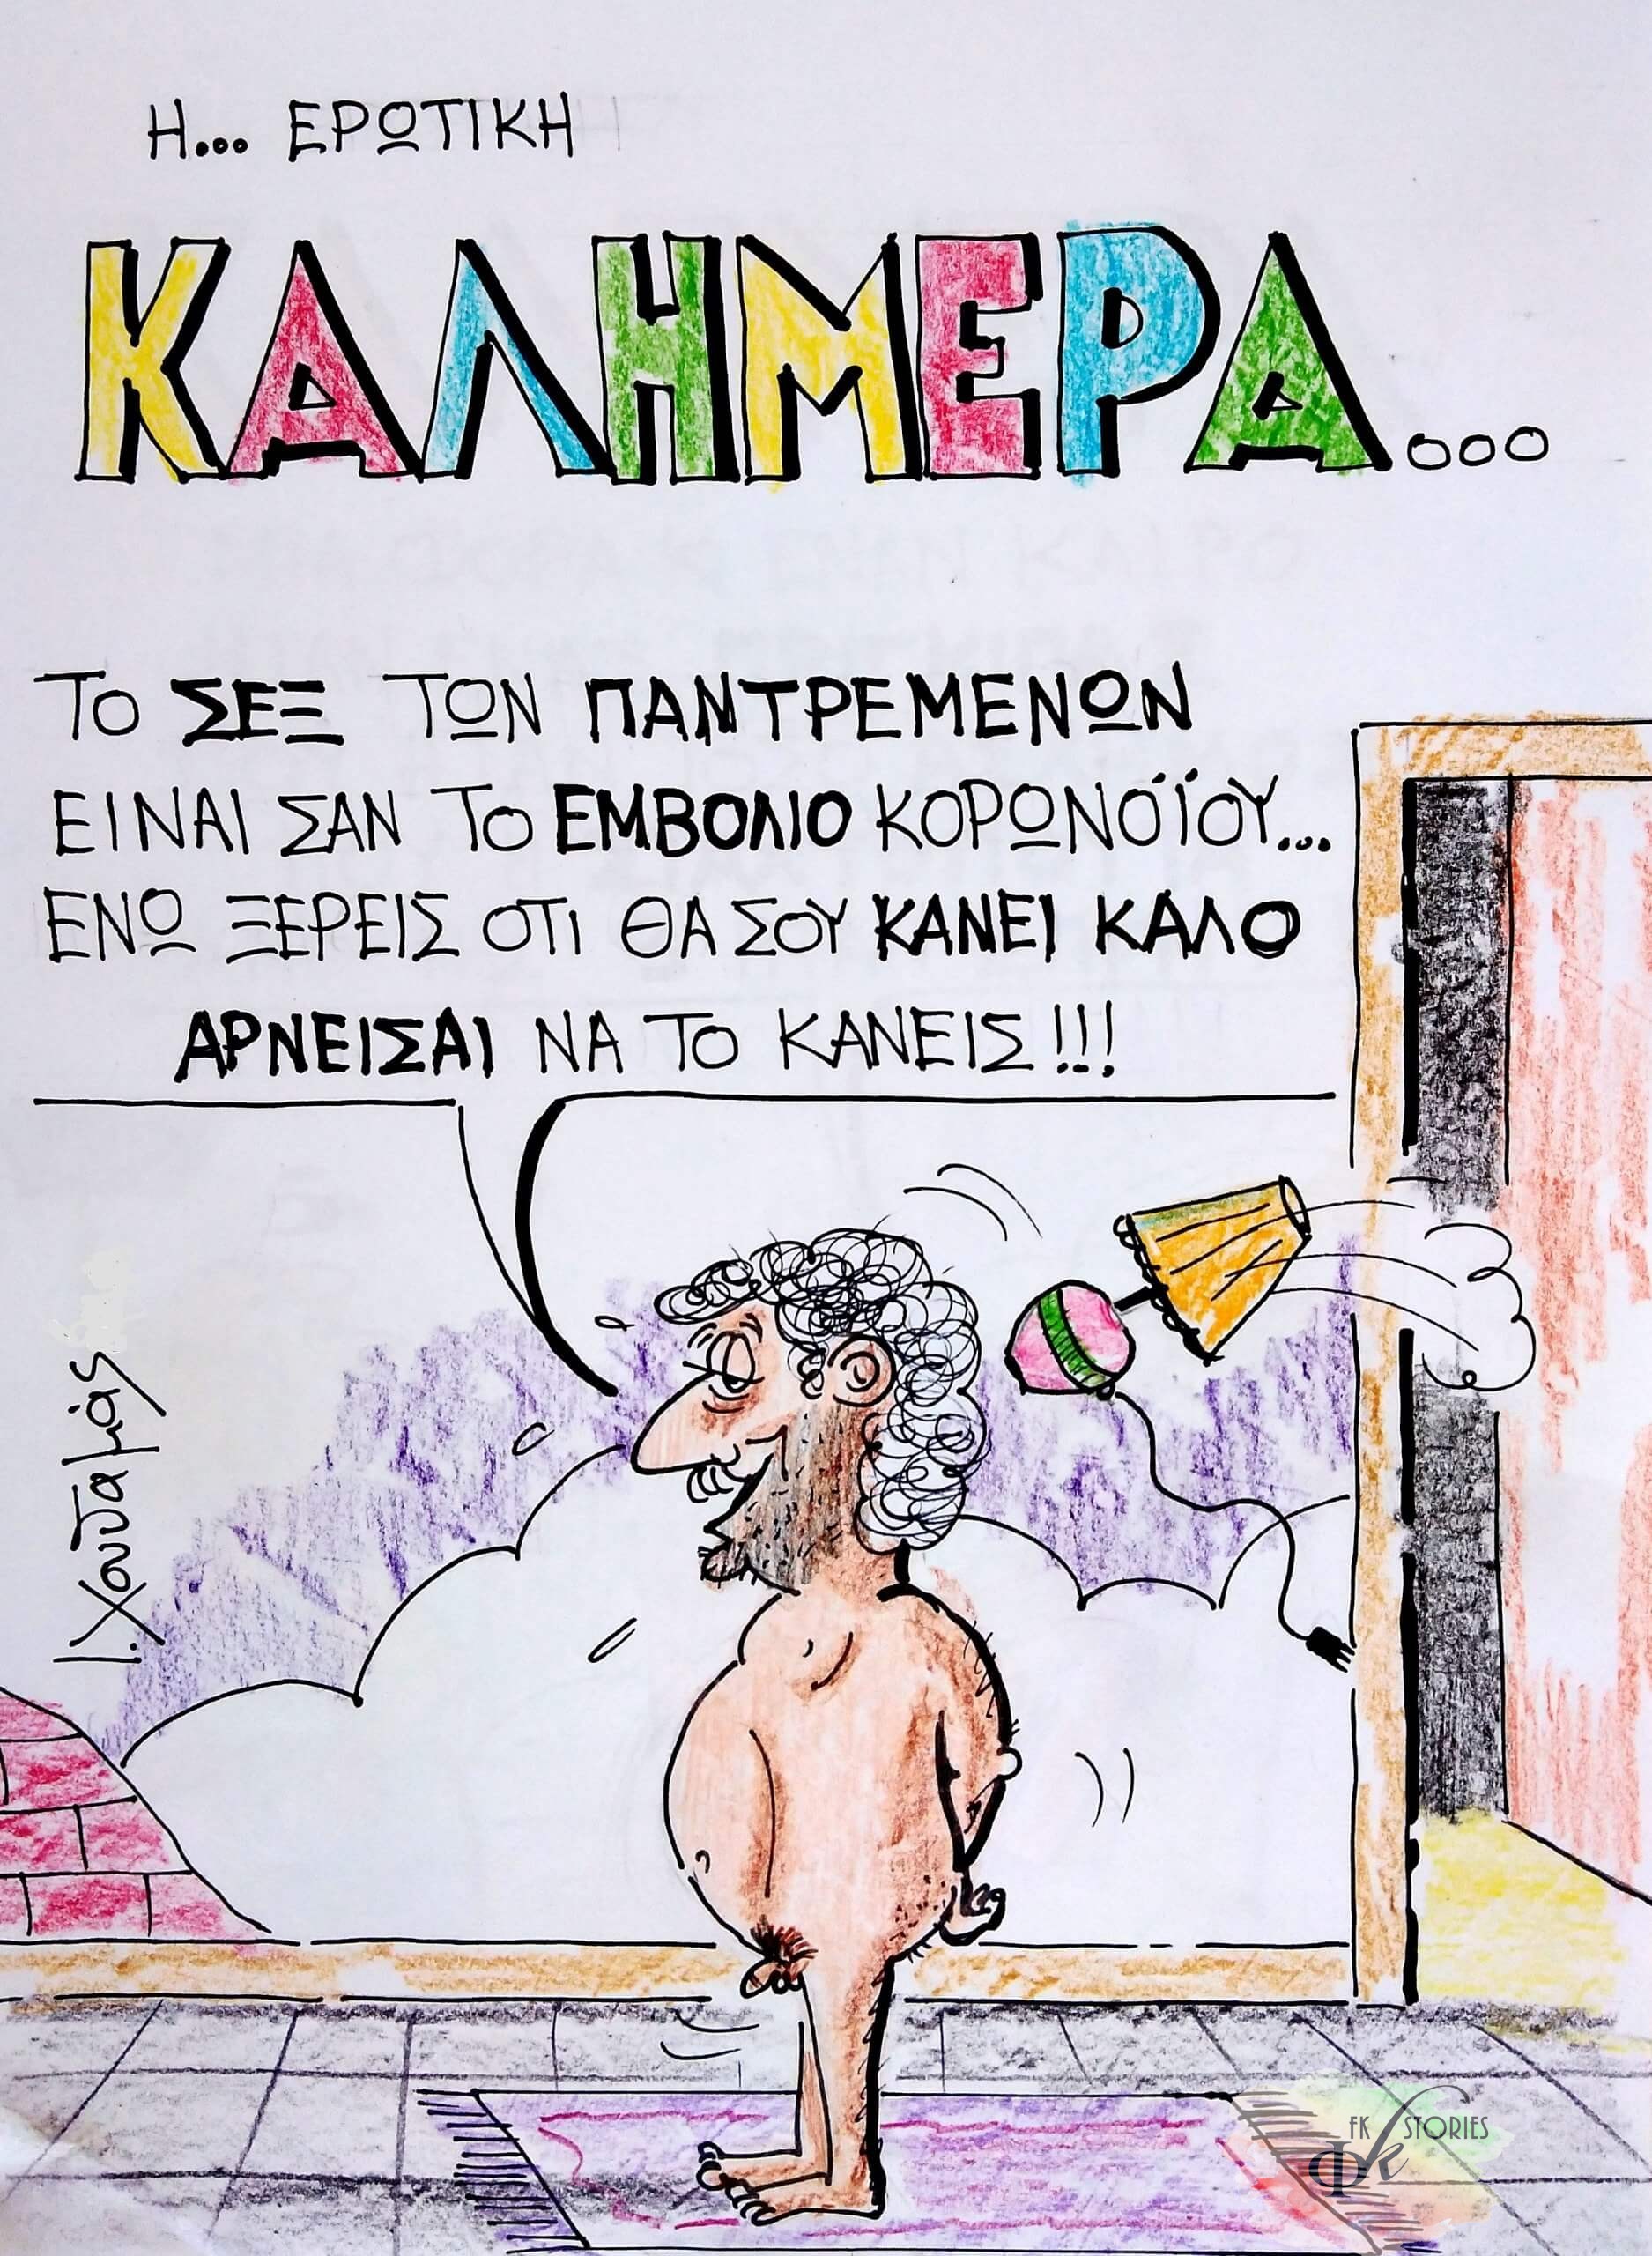 Η... ΕΡΩΤΙΚΗ
ΚΑΛΗΜΕΡΑ...
ΤΟ ΣΕΞ ΤΩΝ ΠΑΝΤΡΕΜΕΝΩΝ
ΕΙΝΑΙ ΣΑΝ ΤΟ ΕΜΒΟΛΙΟ ΚΟΡΩΝΟΪΟΥ...
ΕΝΩ ΞΕΡΕΙΣ ΟΤΙ ΘΑ ΣΟΥ ΚΑΝΕΙ ΚΑΛΟ
ΑΡΝΕΙΣΑΙ ΝΑ ΤΟ ΚΑΝΕΙΣ!!!
FK STORIES